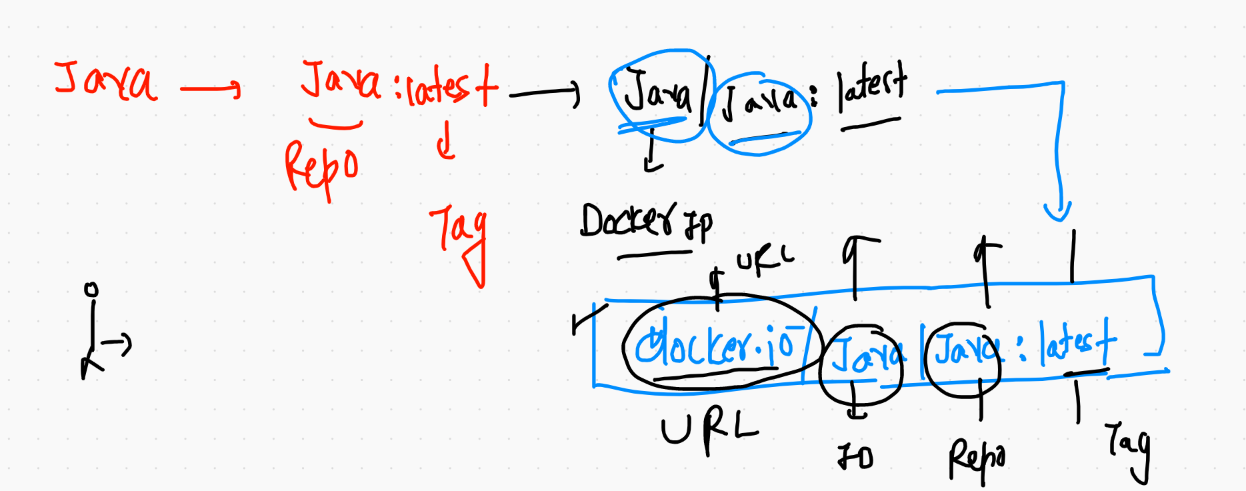 Java → Java :latest → Java / Java : latest
Repo
Tag
Docker ID
URL
docker.io / Java / Java : latest
URL
ID
Repo
Tag